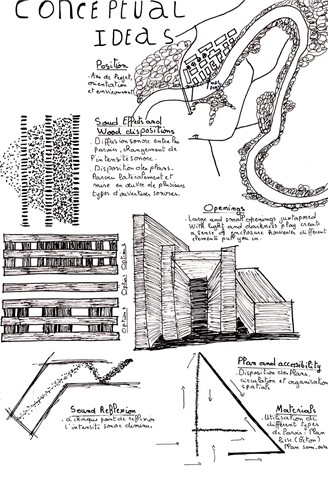 CONCEPTUAL
IDEAS
Position
- Axe de Projet,
orientation
et environnement
Sound Effects and
Wood dispositions
. Diffusion sonore entre les
parois, changement de
l'intensité sonore.
. Disposition des plans.
Parcours
et
mise en œuvre de plusieurs
types d'ouvertures sonores.
Openings
. Large and small openings juxtaposed
With light and darkness play create
a sense of enclosure However different
elements pull you in.
options
options
option
Sound Reflexion
. a chaque point de réflexion
l'intensité sonore diminue.
Plan and accessibility
. Disposition des Plans,
circulation et organisation
spatiale
Materials
. Utilisation de
différent types
de Parois: Plan
lisse (Béton)
Plan semi